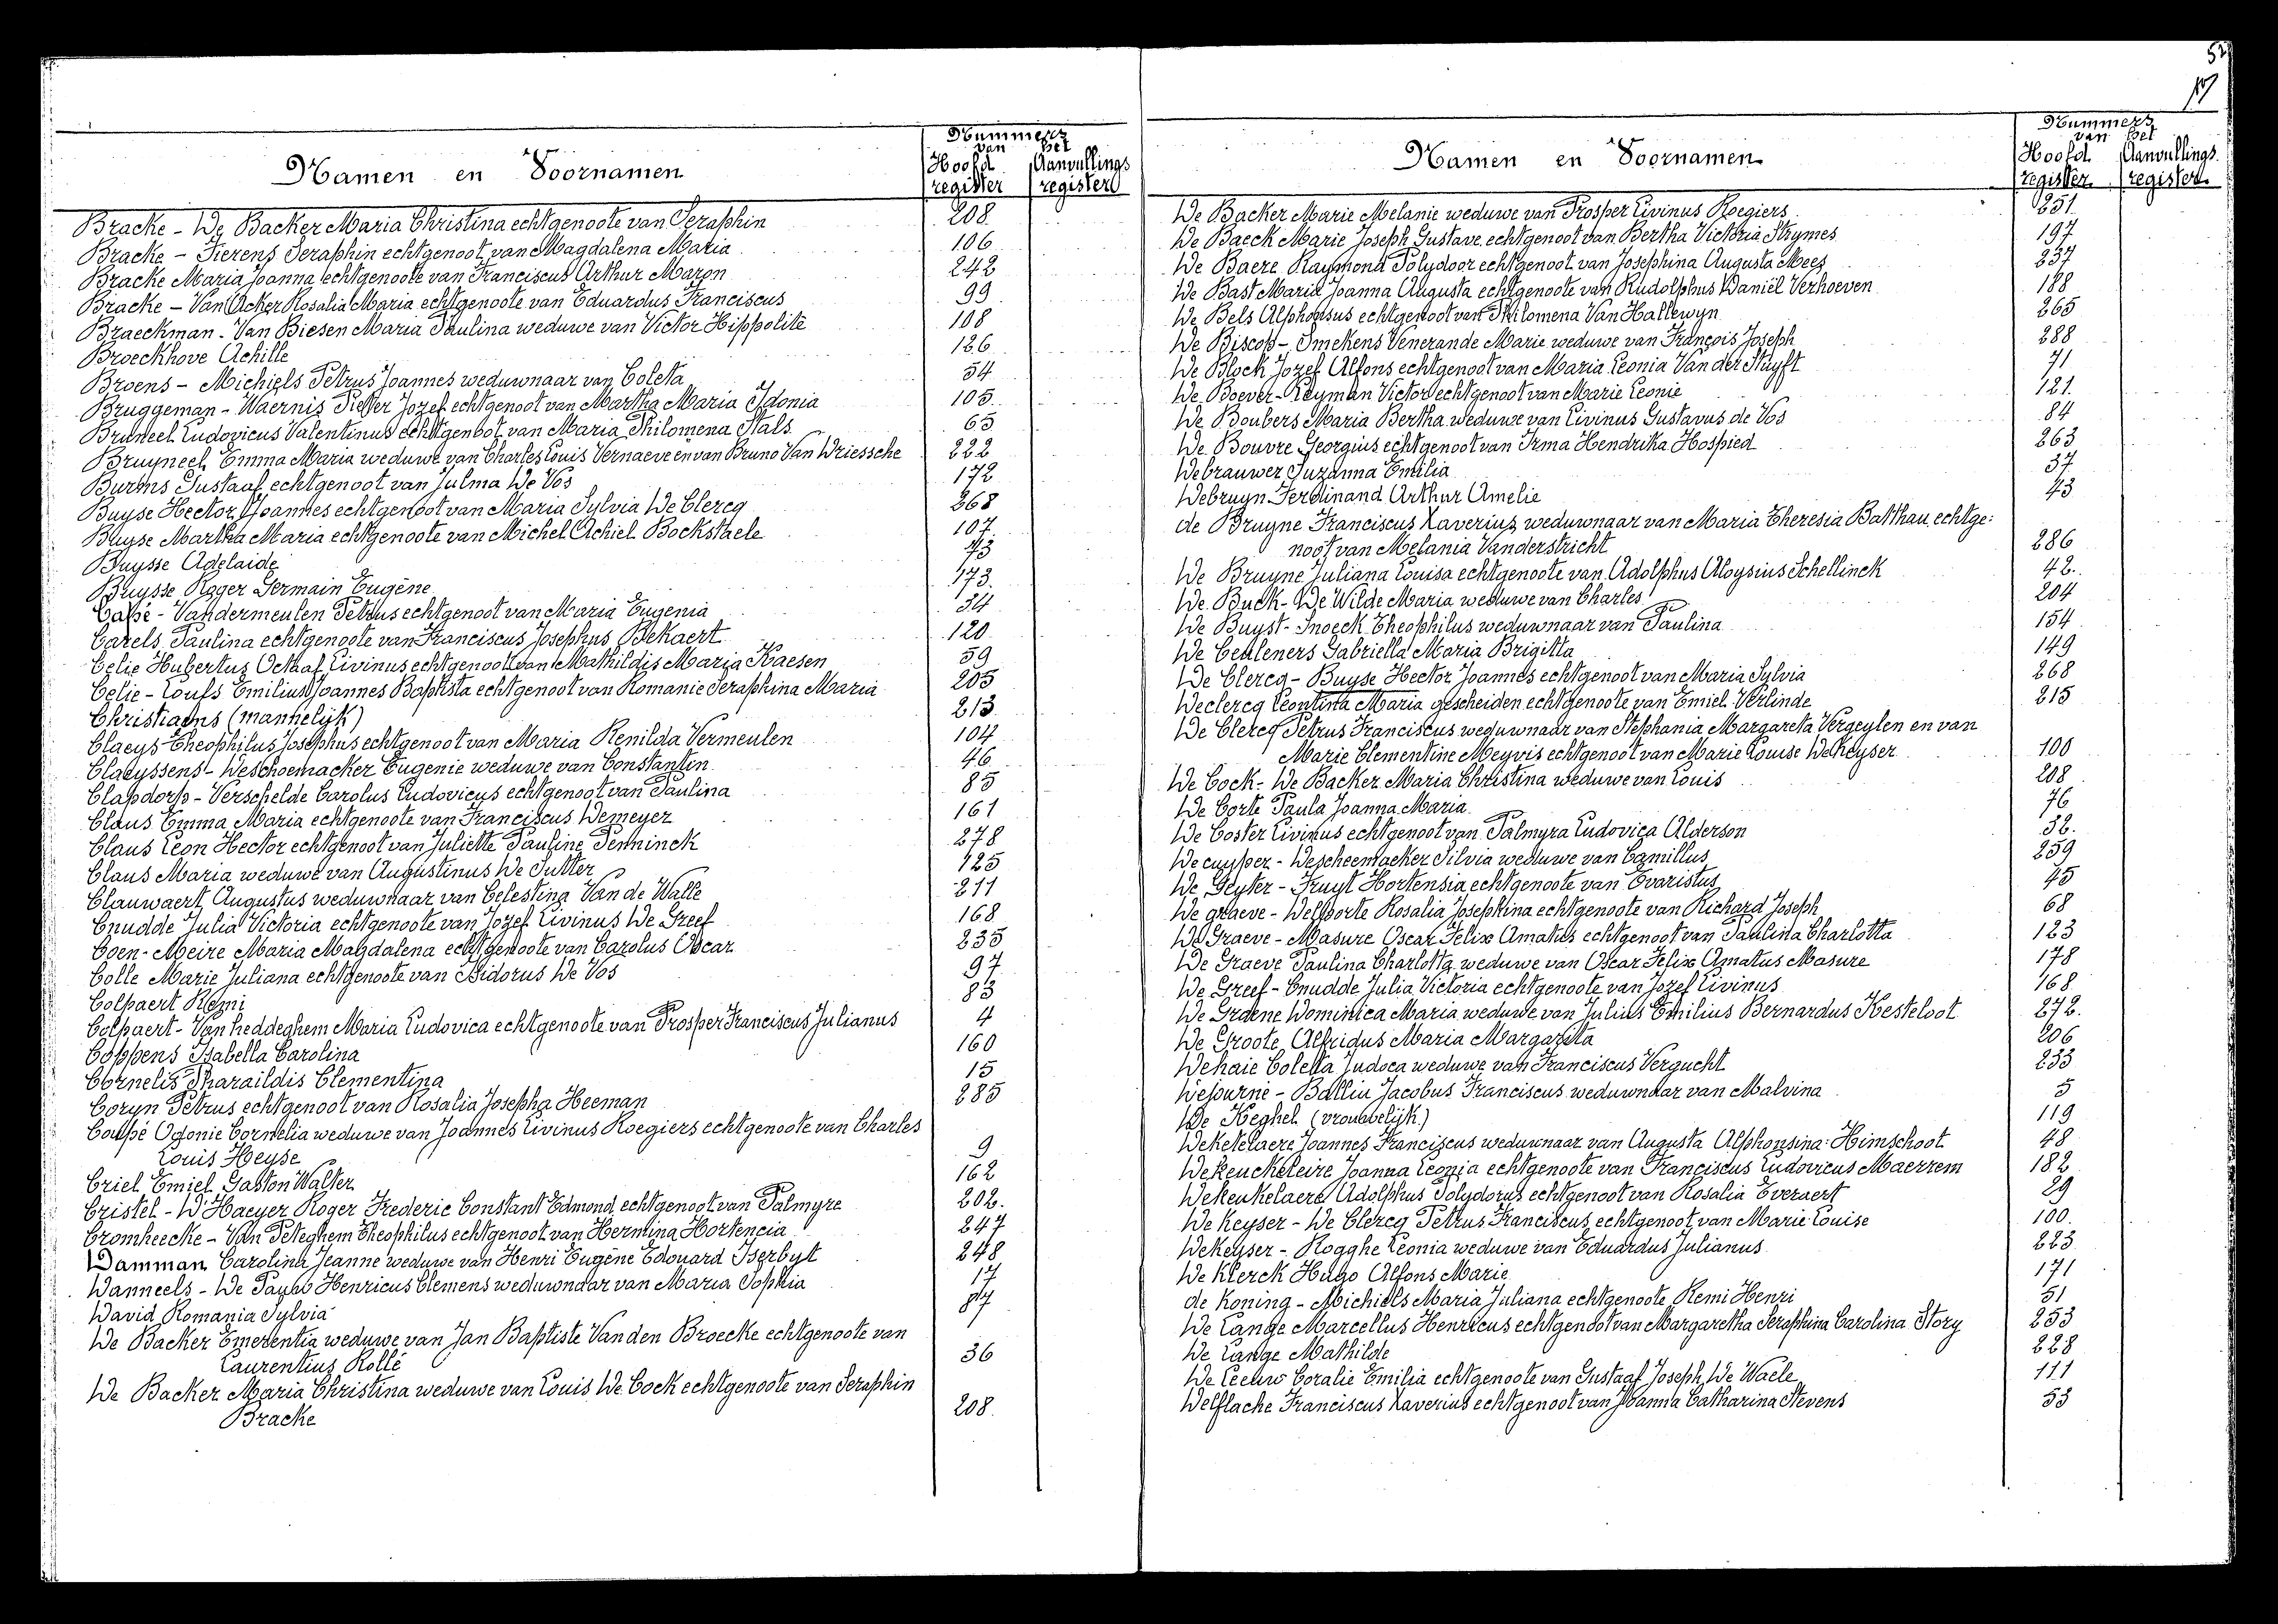 52
Nummers
van het
Namen en Voornamen
Hoofd Aanvullings
register register
Bracke - De Backer Maria Christina echtgenoote van Seraphin 208
Bracke - Fierens Seraphin echtgenoot van Magdalena Maria 106
Bracke Maria Joanna echtgenoote van Franciscus Arthur Maron 242
Bracke - Van Acker Rosalia Maria echtgenoote van Eduardus Franciscus 99
Braeckman - Van Biesen Maria Paulina weduwe van Victor Hippolite 108
Broeckhove Achille 126
Broens - Michiels Petrus Joannes weduwnaar van Coleta 54
Bruggeman - Waernis Pieter Jozef echtgenoot van Martha Maria Idonia 105
Bruneel Ludovicus Valentinus echtgenoot van Maria Philomena Stals 65
Bruyneel Emma Maria weduwe van Charles Louis Vernaeve en van Bruno Van Driessche 222
Burms Gustaaf echtgenoot van Julma De Vos 172
Buyse Hector Joannes echtgenoot van Maria Sylvia De Clercq 268
Buyse Martha Maria echtgenoote van Michel Achiel Bockstaele 107
Buysse Adelaide 73
Buysse Roger Germain Eugène 173
Capé - Vandermeulen Petrus echtgenoot van Maria Eugenia 34
Carels Paulina echtgenoote van Franciscus Josephus Bekaert 120
Celie Hubertus Octaaf Livinus echtgenoot van Mathildis Maria Haesen 59
Celie - Loufs Emilius Joannes Baptista echtgenoot van Romanie Seraphina Maria 205
Christiaens (mannelijk) 213
Claeys Theophilus Josephus echtgenoot van Maria Renilda Vermeulen 104
Claeyssens - Deschoemacker Eugenie weduwe van Constantin 46
Clapdorp - Verschelde Carolus Ludovicus echtgenoot van Paulina 85
Claus Emma Maria echtgenoote van Franciscus Demeyer 161
Claus Leon Hector echtgenoot van Juliette Pauline Penninck 278
Claus Maria weduwe van Augustinus De Sutter 125
Clauwaert Augustus weduwnaar van Celestina Van de Walle 211
Cnudde Julia Victoria echtgenoote van Jozef Livinus De Greef 168
Coen - Meire Maria Magdalena echtgenoote van Carolus Oscar 235
Colle Marie Juliana echtgenoote van Isidorus De Vos 97
Colpaert Remi 83
Colpaert - Van heddeghem Maria Ludovica echtgenoote van Prosper Franciscus Julianus 4
Coppens Isabella Carolina 160
Cornelis Pharaildis Clementina 15
Coryn Petrus echtgenoot van Rosalia Josepha Heeman 285
Coupé Odonie Cornelia weduwe van Joannes Livinus Roegiers echtgenoote van Charles
Louis Heyse 9
Criel Emiel Gaston Walter 162
Cristel - D'Haeyer Roger Frederic Constant Edmond echtgenoot van Palmyre 202.
Cromheecke - Van Peteghem Theophilus echtgenoot van Hermina Hortencia 247
Damman Carolina Jeanne weduwe van Henri Eugène Edouard Iserbyt 248
Danneels - De Pauw Henricus Clemens weduwnaar van Maria Sophia 17
David Romania Sylvia 87
De Backer Emerentia weduwe van Jan Baptiste Van den Broecke echtgenoote van
Laurentius Rollé 36
De Backer Maria Christina weduwe van Louis De Cock echtgenoote van Seraphin
Bracke 208
Nummers
van het
Namen en Voornamen
Hoofd Aanvullings
register register
De Backer Marie Melanie weduwe van Prosper Livinus Roegiers 251
De Baeck Marie Joseph Gustave echtgenoot van Bertha Victoria Strymes 197
De Baere Raymond Polydoor echtgenoot van Josephina Augusta Mees 257
De Bast Maria Joanna Augusta echtgenoote van Rudolphus Daniël Verhoeven 188
De Bels Alphonsus echtgenoot van Philomena Van Hallewyn 265
De Biscop - Smekens Venerande Marie weduwe van François Joseph 288
De Block Jozef Alfons echtgenoot van Maria Leonia Van der Stuyft 71
De Boever - Heyman Victor echtgenoot van Marie Leonie 121.
De Boubers Maria Bertha weduwe van Livinus Gustavus de Vos 84
De Bouvre Georgius echtgenoot van Irma Hendrika Hospied 263
Debrauwer Suzanna Emilia 37
Debruyn Ferdinand Arthur Amelie 43
de Bruyne Franciscus Xaverius weduwnaar van Maria Theresia Batthau echtge:
noot van Melania Vanderstricht 286
De Bruyne Juliana Louisa echtgenoote van Adolphus Aloysius Schellinck 42.
De Buck - De Wilde Maria weduwe van Charles 204
De Buyst - Snoeck Theophilus weduwnaar van Paulina 154
De Ceuleners Gabriella Maria Brigitta 149
De Clercq - Buyse Hector Joannes echtgenoot van Maria Sylvia 268
Declercq Leontina Maria gescheiden echtgenoote van Emiel Verlinde 215
De Clercq Petrus Franciscus weduwnaar van Stephania Margareta Vergeylen en van
Marie Clementine Meyvis echtgenoot van Marie Louise De Keyser 100
De Cock - De Backer Maria Christina weduwe van Louis 208
De Corte Paula Joanna Maria 76
De Coster Livinus echtgenoot van Palmyra Ludovica Alderson 32.
Decuyper - Descheemaeker Silvia weduwe van Camillus 259
De Geyter - Fruyt Hortensia echtgenoote van Evaristus 45
De graeve - Delporte Rosalia Josephina echtgenoote van Richard Joseph 68
De Graeve - Masure Oscar Felix Amatus echtgenoot van Paulina Charlotta 123
De Graeve Paulina Charlotta weduwe van Oscar Felix Amatus Masure 178
De Greef - Cnudde Julia Victoria echtgenoote van Jozef Livinus 168
De Groene Dominica Maria weduwe van Julius Emilius Bernardus Kesteloot 272.
De Groote Alfridus Maria Margareta 206
Dehaie Coletta Judoca weduwe van Franciscus Vergucht 233
Dejourné - Balliu Jacobus Franciscus weduwnaar van Malvina 5
De Keghel (vrouwelijk) 119
Deketelaere Joannes Franciscus weduwnaar van Augusta Alphonsina Himschoot 48
Dekeuckeleire Joanna Leonia echtgenoote van Franciscus Ludovicus Maerrem 182
Dekeukelaere Adolphus Polydorus echtgenoot van Rosalia Everaert 29
De Keyser - De Clercq Petrus Franciscus echtgenoot van Marie Louise 100.
Dekeyser - Rogghe Leonia weduwe van Eduardus Julianus 223
De Klerck Hugo Alfons Marie 171
de Koning - Michiels Maria Juliana echtgenoote Remi Henri 51
De Lange Marcellus Henricus echtgenoot van Margaretha Seraphina Carolina Story 253
De Lange Mathilde 228
De Leeuw Coralie Emilia echtgenoote van Gustaaf Joseph De Waele 111
Delflache Franciscus Xaverius echtgenoot van Joanna Catharina Stevens 53